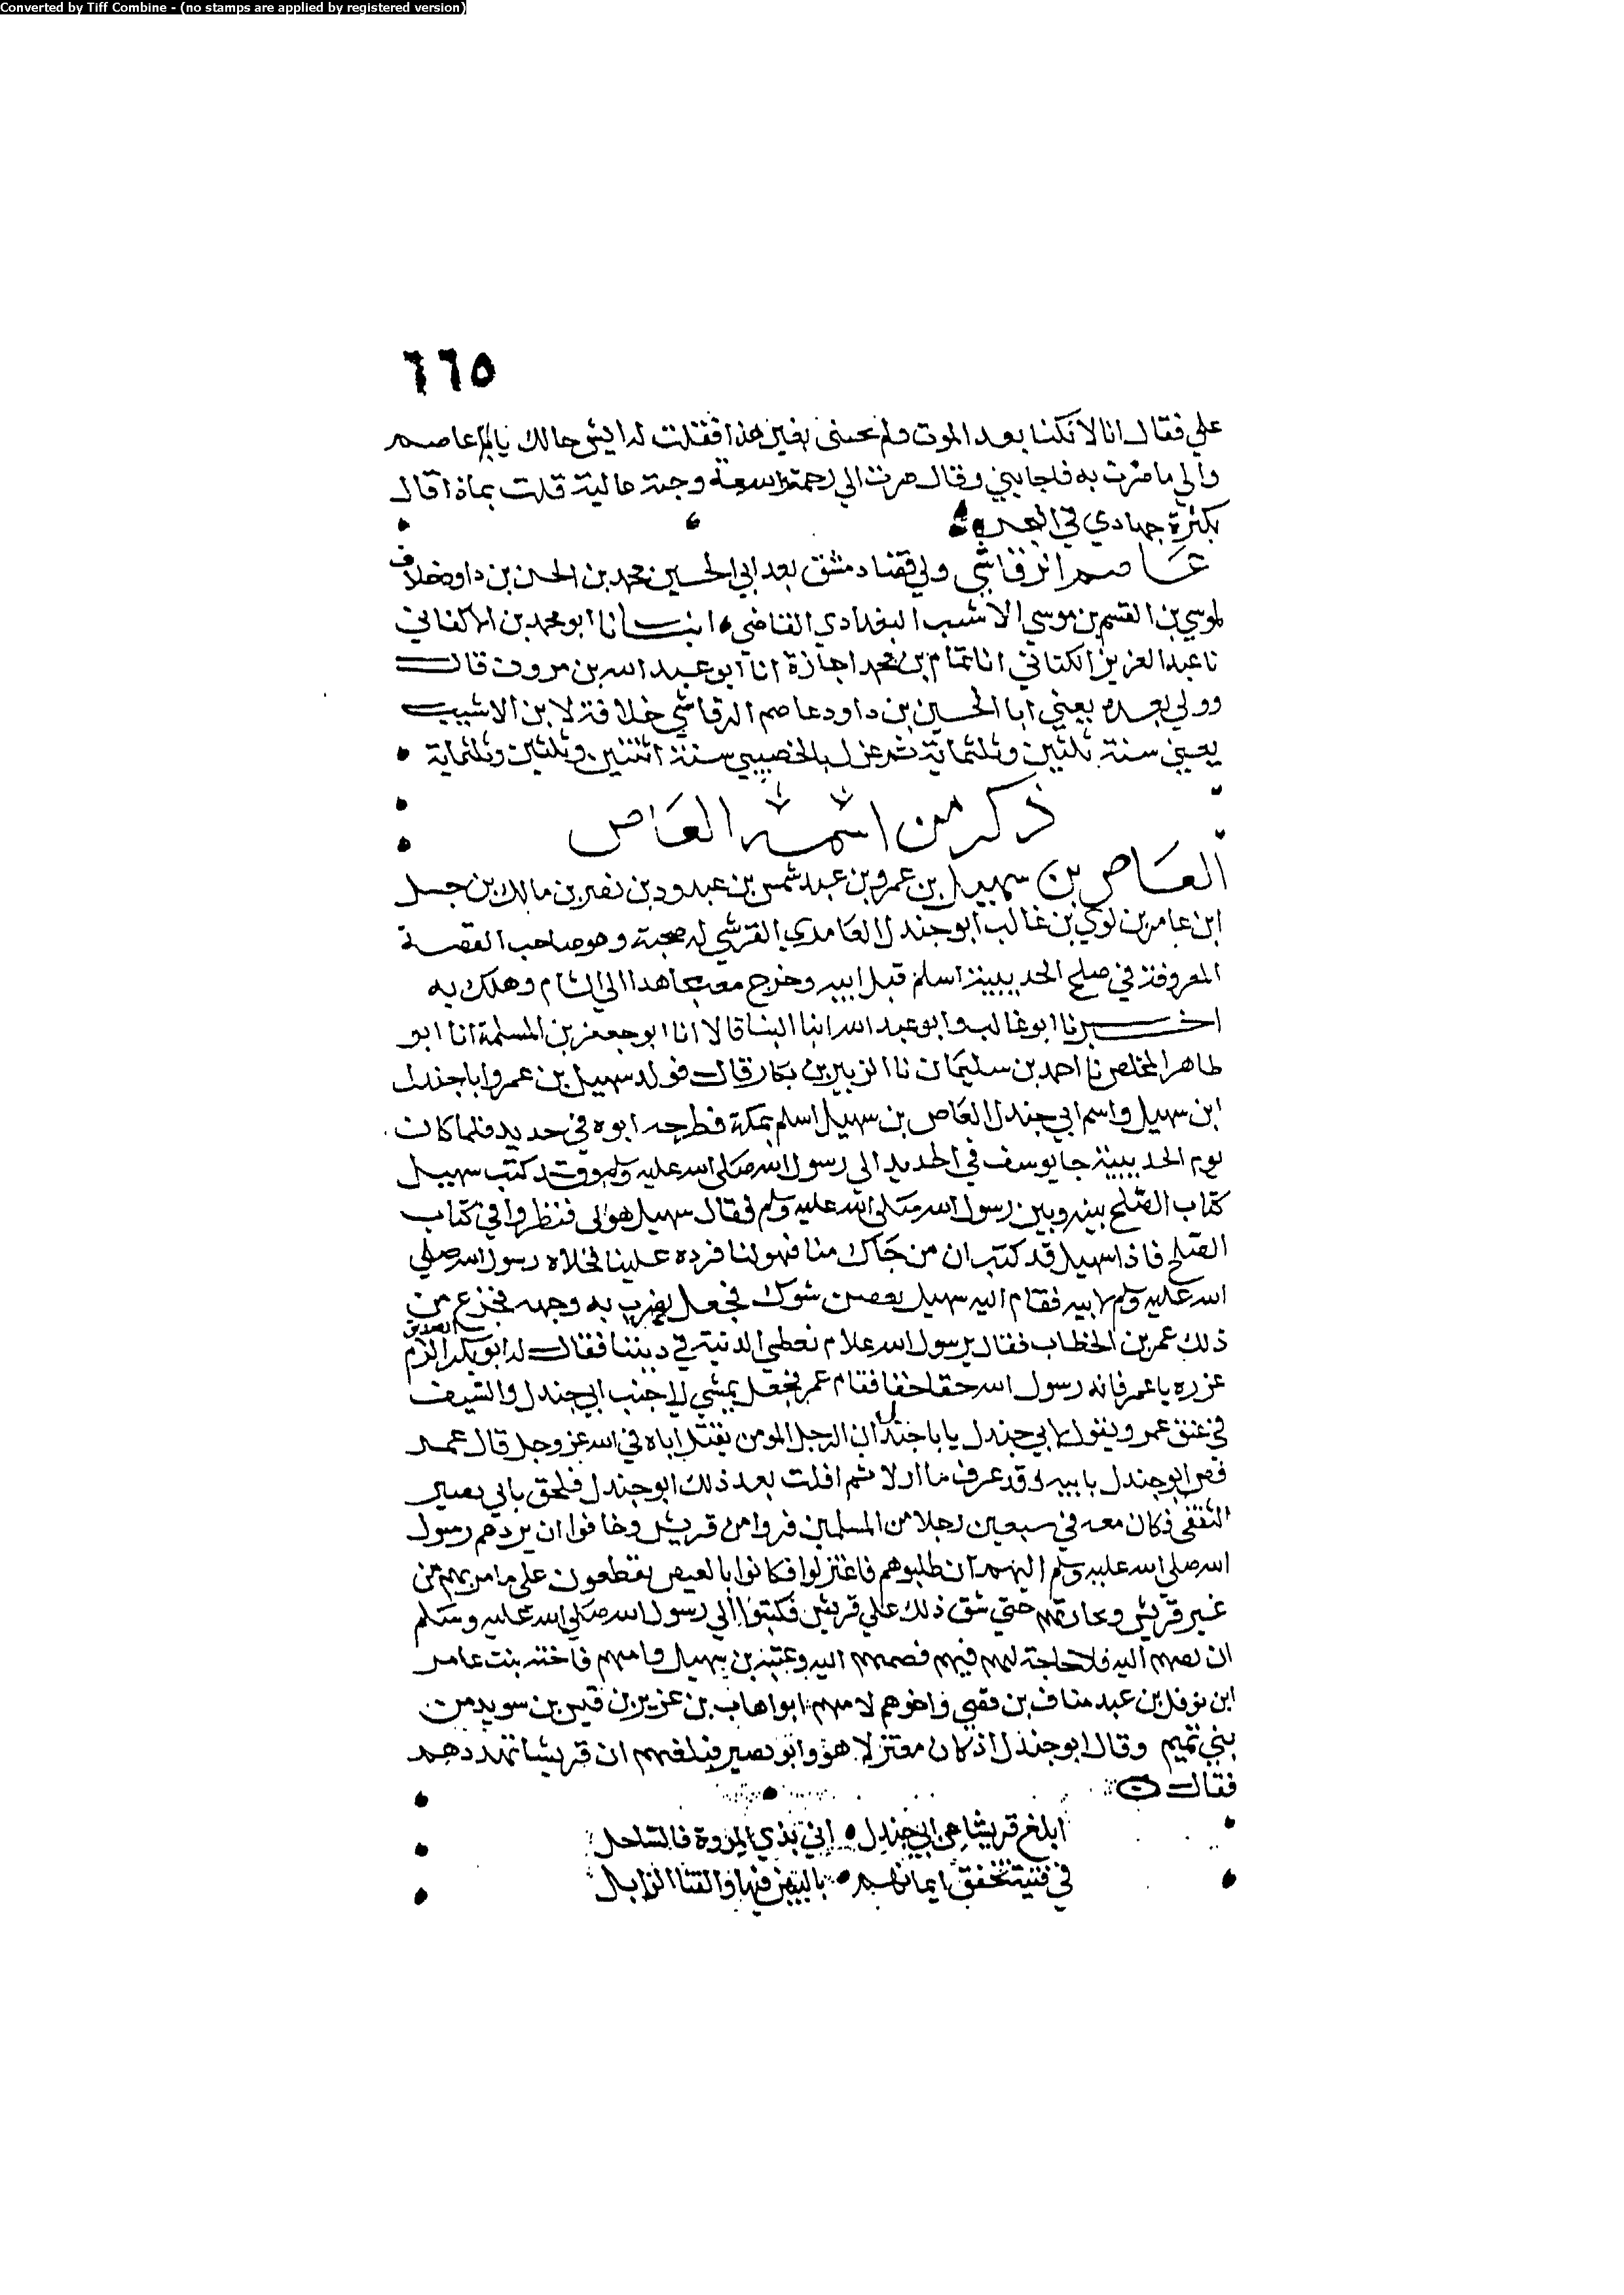 Converted by Tiff Combine - (no stamps are applied by registered version)
٦٦٥
علي فقال انا لا نكنا بعد الموت ولم يجبني بغير هذا فقلت له ايش حالك يابا عاصم
والي ما صرت به فاجابني وقال صرت الي رحمة واسعة وجنة عالية قلت بماذا قال
بكثرة جهادي في البحر
عاصم الرقاشي ولي قضا دمشق بعد ابي الحسين محمد بن الحسن بن داود خلافة
لموسي بن القسم بن موسي الاشيب البغدادي القاضي انبسانا ابو محمد بن الاكفاني
نا عبد العزيز الكتاني انا تمام بن محمد اجازة انا ابو عبد الله بن مروان قال
وولي بعده يعني ابا الحسين بن داود عاصم الرقاشي خلافة لابن الاشيب
يعني سنة ثلثين وثلثماية ثم عزل بالخصيبي سنة اثنين وثلثين وثلثماية
ذكر من اسمه العاص
العاص بن سهيل بن عمرو بن عبد شمس بن عبدود بن نصر بن مالك بن حسل
ابن عامر بن لوي بن غالب ابو جندل العامري القرشي له صحبة وهو صاحب القصة
المعروفة في صلح الحديبية اسلم قبل ابيه وخرج معه مجاهدا الي الشام وهلك به
اخبرنا ابو غالب وابو عبد الله ابنا البنا قالا انا ابو جعفر بن المسلمة انا ابو
طاهر المخلص نا احمد بن سليمان نا الزبير بن بكار قال فولد سهيل بن عمرو ابا جندل
ابن سهيل واسم ابي جندل العاص بن سهيل اسلم بمكة فطرحه ابوه في حديد فلما كان
يوم الحديبية جا يوسف في الحديد الي رسول الله صلى الله عليه وسلم وقد كتب سهيل
كتاب الصلح بينه وبين رسول الله صلى الله عليه وسلم فقال سهيل هو لي فنظروا في كتاب
الصلح فاذا سهيل قد كتب ان من جاك منا فهو لنا فرده علينا فخلاه رسول الله صلى
الله عليه وسلم لابيه فقام اليه سهيل بغصن شوك فجعل يضرب به وجهه فجزع من
ذلك عمر بن الخطاب فقال يرسول الله علام نعطي الدنية في ديننا فقال له ابو بكر الصديق الزم
غرزه يا عمر فانه رسول الله حقا حقا فقام عمر فجعل يمشي الي جنب ابي جندل والسيف
في عنق عمر ويقول لابي جندل يا با جندل ان الرجل المومن يقتل اباه في الله عز وجل قال عمر
فضن ابو جندل بابيه وقد عرف ما ارد لا ثم افلت بعد ذلك ابو جندل فلحق بابي بصير
الثقفي فكان معه في سبعين رجلا من المسلمين فروا من قريش وخافوا ان يردهم رسول
الله صلى الله عليه وسلم اليهم ان طلبوهم فاعتزلوا فكانوا بالعيص يقطعون على ما مر بهم من
عير قريش وتجارتهم حتي شق ذلك علي قريش فكتبوا الي رسول الله صلى الله عليه وسلم
ان يضمهم اليه فلا حاجة لهم فيهم فضمهم اليه وعتبة بن سهيل وامهم فاخته بنت عامر
ابن نوفل بن عبد مناف بن قصي واخوهم لامهم ابو اهاب بن عزيز بن قيس بن سويد من
بني تميم وقال ابو جندل اذ كان معتزلا هو وابو بصير فبلغهم ان قريشا تهددهم
فقال
ابلغ قريشا عن ابي جندل اني بذي المروة فالساحل
في فتية تخفق ايمانهم بالبيض فيها والقنا الذابل